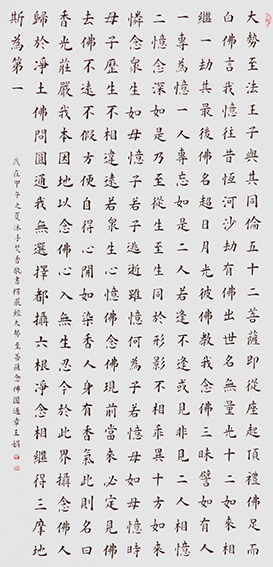 大勢至法王子與其同倫五十二菩薩即從座起頂禮佛足而
白佛言我憶往昔恆河沙劫有佛出世名無量光十二如來相
繼一劫其最後佛名超日月光彼佛教我念佛三昧譬如有人
一專為憶一人專忘如是二人若逢不逢或見非見二人相憶
二憶念深如是乃至從生至生同於形影不相乖異十方如來
憐念眾生如母憶子若子逃逝雖憶何為子若憶母如母憶時
母子歷生不相違遠若眾生心憶佛念佛現前當來必定見佛
去佛不遠不假方便自得心開如染香人身有香氣此則名曰
香光莊嚴我本因地以念佛心入無生忍今於此界攝念佛人
歸於淨土佛問圓通我無選擇都攝六根淨念相繼得三摩地
斯為第一
歲在甲午之夏沐手焚香敬書楞嚴經大勢至菩薩念佛圓通章王娟